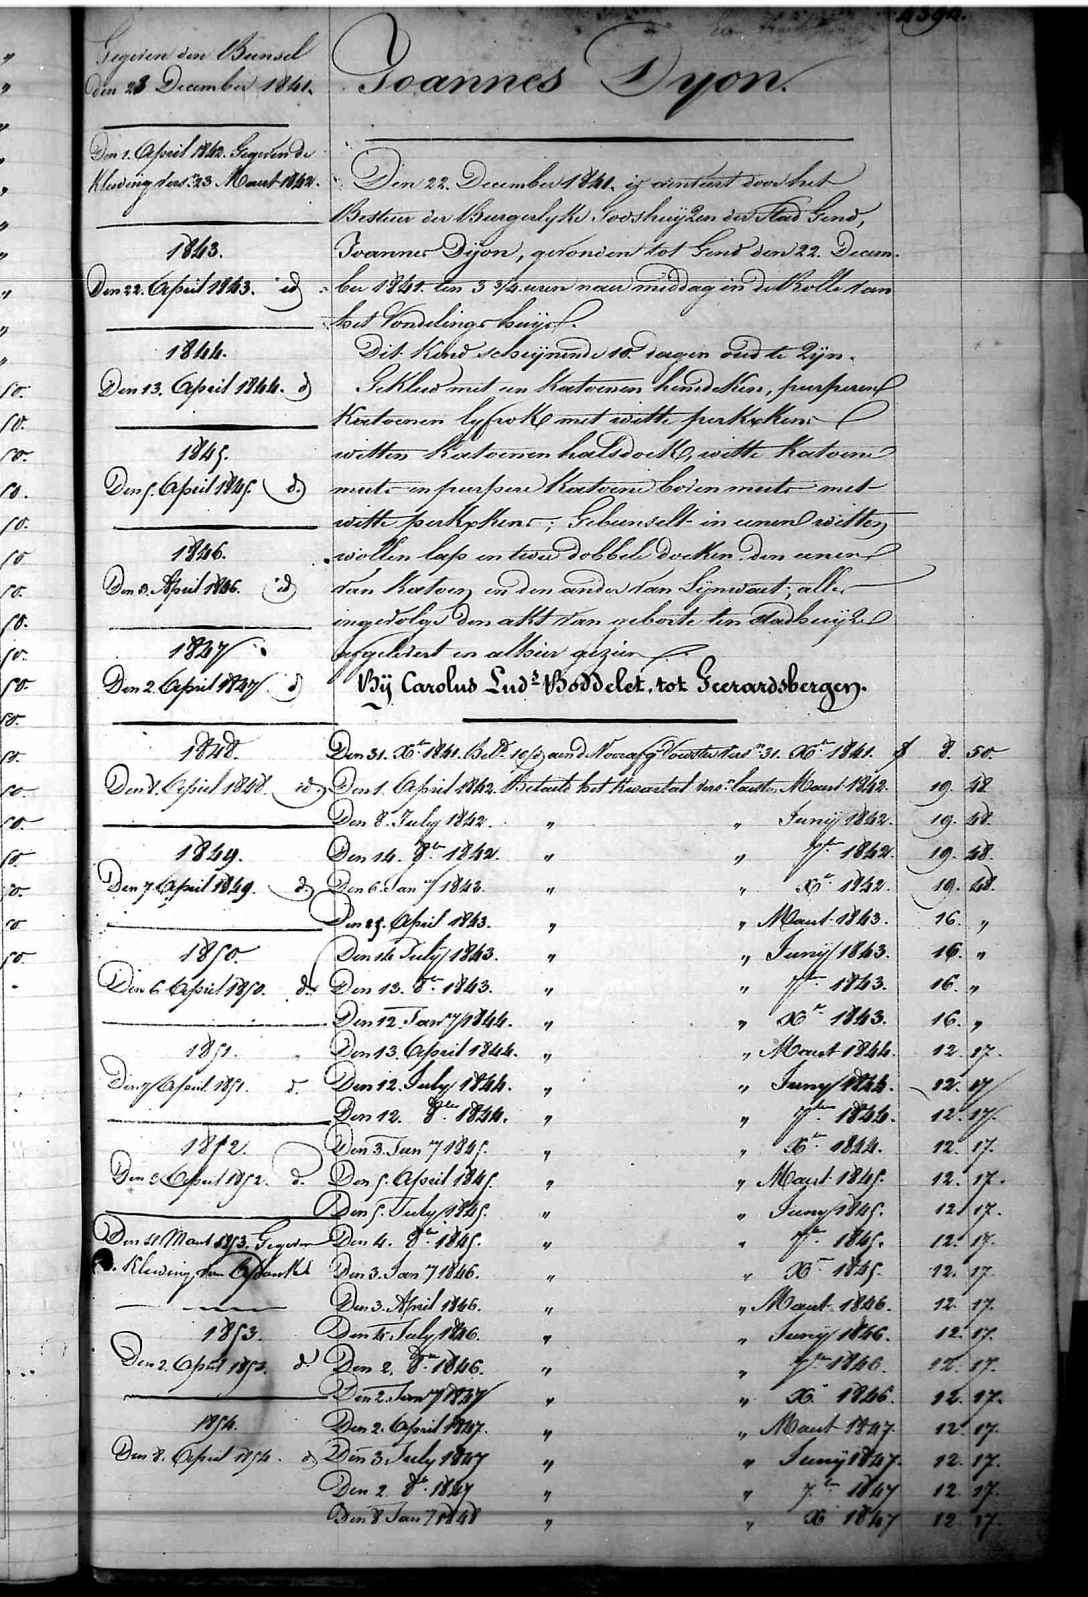 4394.
Gegeven den Bunsel
den 23 December 1841.
Den 1. April 1842. Gegeven de
Kleeding vers. 23 Maert 1842.
1843.
Den 22. April 1843. id
1844.
Den 13. April 1844. d
1845.
Den 5. April 1845. d.
1846.
Den 3. April 1846. id
1847
Den 2. April 1847 d
1848.
Den 8. April 1848. id.
1849.
Den 7. April 1849. d.
1850.
Den 6. April 1850. d.
1851.
Den 7 April 1851. d.
1852.
Den 3 April 1852. d.
Maert 1853. Gegeven
Kleeding
1853.
Den 2. April 1853. d.
1854.
Den 8. April 1854. d
Joannes Dyon.
Den 22. December 1841. is aenveert door het
Bestier der Burgerlyke Godshuyzen der Stad Gend,
Joannes Dyon, gevonden tot Gend den 22. Decem-
ber 1841. ten 3 3/4. uren naer middag in de Rolle van
het Vondelings huys.
Dit Kind schynende 10. dagen oud te zyn.
Gekleed met een Katoenen hemdeken, purperen
Katoenen lyfrok met witte perkxkens
witten Katoenen halsdoek, witte Katoene
muts en purpere Katoene boven muts met
witte perkxkens; Gebunselt in eenen witten
wollen lap en twee dobbele doeken den eenen
van Katoen en den ander van Lynwaet; alles
ingevolge den akt van geboorte ten Stadhuyze
afgelevert en alhier gezien.
By Carolus Luds. Boddelet. tot Geerardsbergen.
Den 31. Xr. 1841. 31. Xr. 1841. f 8. 50
Den 1. April 1842. Betaelt het Kwartael vers. laetsten Maert 1842. 19. 48
Den 8. July 1842. " " Juny 1842. 19. 48.
Den 14. 8br. 1842. " " 7br. 1842. 19. 48.
Den 6. Jany 1843. " " Xr. 1842. 19. 48.
Den 25. April 1843. " " Maert 1843. 16. "
Den 14 July 1843. " " Juny 1843. 16. "
Den 13. 8br. 1843. " " 7br. 1843. 16. "
Den 12. Jany 1844. " " Xr. 1843. 16. "
Den 13. April 1844. " " Maert 1844. 12. 17.
Den 12. July 1844. " " Juny 1844. 12. 17
Den 12. 8br. 1844. " " 7br. 1844. 12. 17.
Den 3. Jany 1845. " " Xr. 1844. 12. 17.
Den 5. April 1845. " " Maert 1845. 12. 17.
Den 5. July 1845. " " Juny 1845. 12. 17.
Den 4. 8br. 1845. " " 7br. 1845. 12. 17.
Den 3. Jany 1846. " " Xr. 1845. 12. 17.
Den 3. April 1846. " " Maert 1846. 12. 17.
Den 4. July 1846. " " Juny 1846. 12. 17.
Den 2. 8br. 1846. " " 7br. 1846. 12. 17.
Den 2. Jany 1847 " " Xr. 1846. 12. 17.
Den 2. April 1847. " " Maert 1847. 12. 17.
Den 3 July 1847 " " Juny 1847. 12. 17.
Den 2. 8br. 1847 " " 7br. 1847 12. 17.
Den 8 Jany 1848 " " Xr. 1847 12. 17.